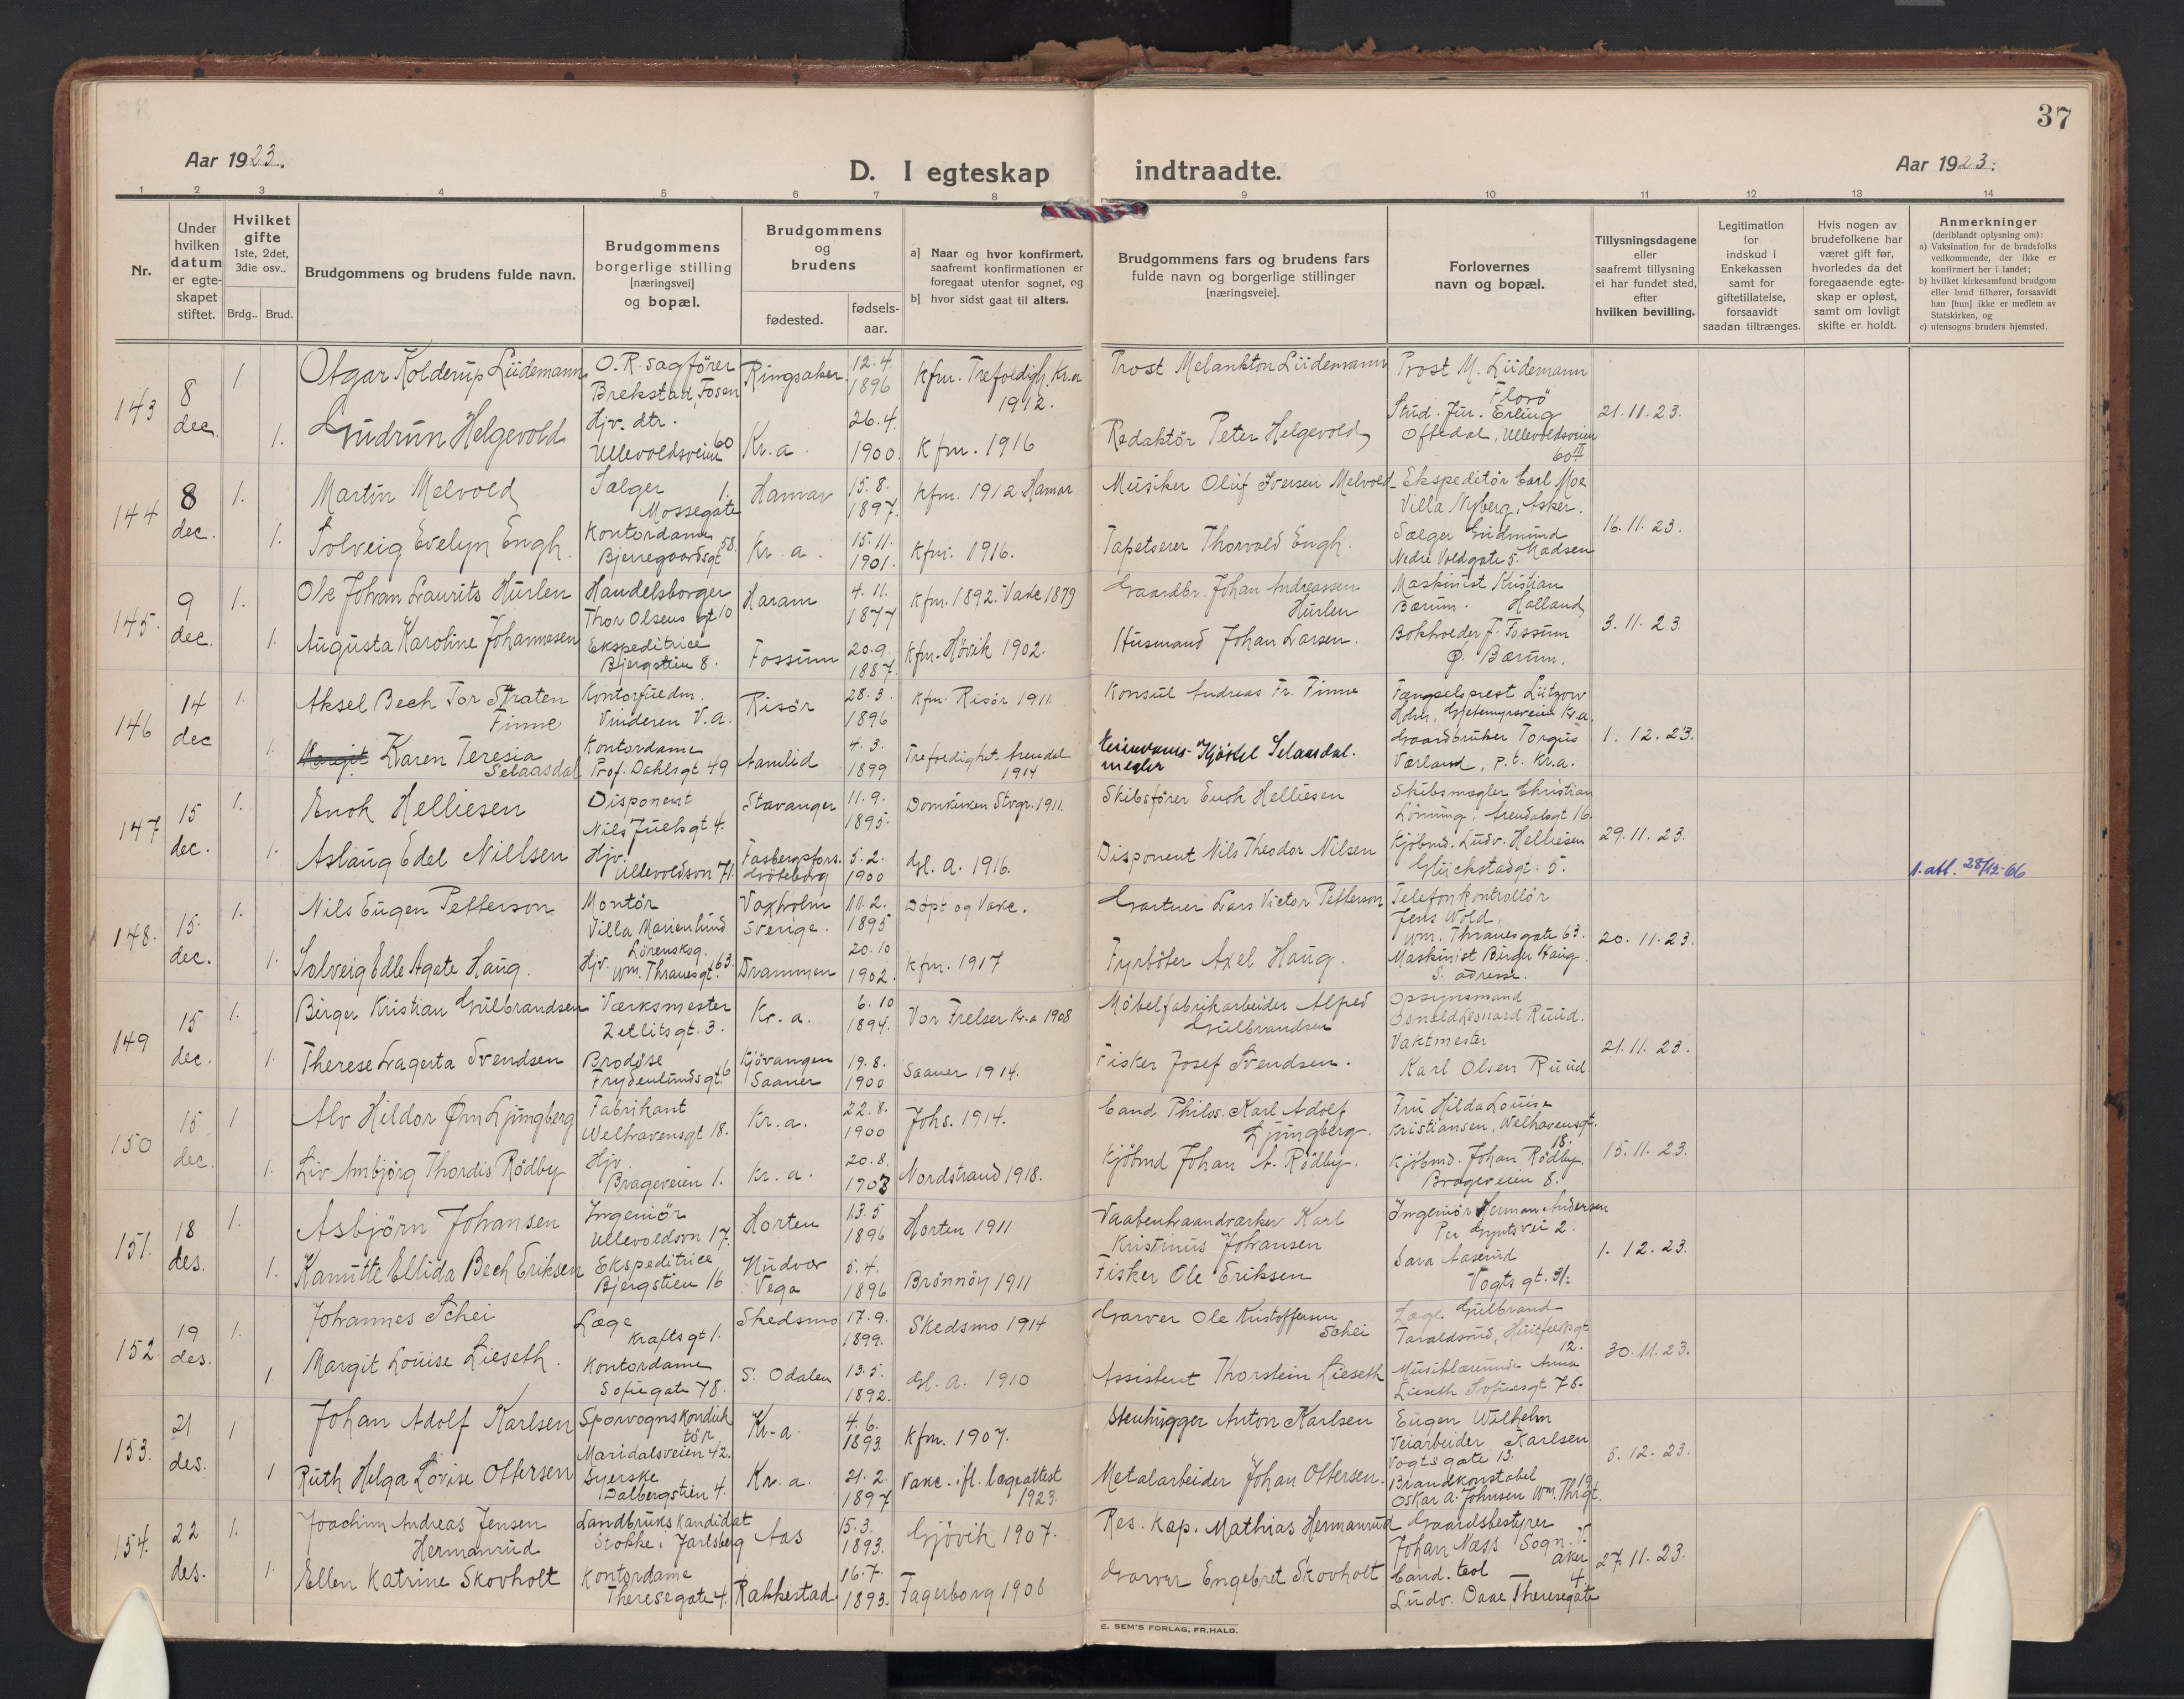 37
Aar 1923.
D. I egteskap indtraadte.
Aar 1923.
1 2 3 4 5 6 7 8 9 10 11 12 13 14
Nr.
Under hvilken datum er egteskapet stiftet.
Hvilket gifte 1ste, 2det, 3die osv..
Brdg.. Brud.
Brudgommens og brudens fulde navn.
Brudgommens borgerlige stilling [næringsvei] og bopæl.
Brudgommens og brudens
fødested.
fødsels-aar.
a] Naar og hvor konfirmert, saafremt konfirmationen er foregaat utenfor sognet, og
b] hvor sidst gaat til alters.
Brudgommens fars og brudens fars fulde navn og borgerlige stillinger [næringsveie].
Forlovernes navn og bopæl.
Tillysningsdagene eller saafremt tillysning ei har fundet sted, efter hvilken bevilling.
Legitimation for indskud i Enkekassen samt for giftetillatelse, forsaavidt saadan tiltrænges.
Hvis nogen av brudefolkene har været gift før, hvorledes da det foregaaende egteskap er opløst, samt om lovligt skifte er holdt.
Anmerkninger (deriblandt oplysning om):
a) Vaksination for de brudefolks vedkommende, der ikke er konfirmert her i landet;
b) hvilket kirkesamfund brudgom eller brud tilhører, forsaavidt han [hun] ikke er medlem av Statskirken, og
c) utensogns bruders hjemsted.
143 8 dec. 1. Otgar Kolderup Lüdemann O.R. sagfører Brekstad, Fosen Ringsaker 12.4. 1896 Kfm. Trefoldigh. Kr.a 1912. Prost Melankton Lüdemann Prost M. Lüdemann Florö
1. Gudrun Helgevold Hjv. dtr. Ullevoldsveien 60 Kr.a. 26.4. 1900. Kfm. 1916 Redaktör Peter Helgevold Stud. Jur. Erling Oftedal, Ullevoldsveien 60 III 21.11.23.
144 8 dec. 1. Martin Melvold Sælger Mossegate 1. Hamar 15.8. 1897. Kfm. 1912 Hamar Musiker Oluf Iversen Melvold Ekspeditör Carl Moe Villa Nyberg, Asker.
1. Solveig Evelyn Engh. Kontordame Bjerregaardsgt 58. Kr.a. 15.11. 1901. Kfm. 1916. Tapetserer Thorvald Engh. Sælger Gudmund Madsen Nedre Voldgate 5. 16.11.23.
145. 9 dec. 1. Ole Johan Laurits Hurlen Handelsborger Thor Olsens gt 10 Haram 4.11. 1877 Kfm. 1892. Vakc 1879 Gaardbr. Johan Andreassen Hurlen Maskinist Kristian Holland Bærum.
1. Augusta Karoline Johannesen Ekspeditrice Bjergstien 8. Fossum 20.9. 1887. Kfm. Høvik 1902. Husmand Johan Larsen. Bokholder F. Fossum Ø. Bærum. 3.11.23.
146 14 dec 1. Aksel Bech Tor Straten Finne Kontorfuldm. Vinderen V.A. Risör 28.3 1896 Kfm. Risör 1911. Konsul Andreas Fr. Finne Fængselsprest Lützow Holm, Gjetemyrsveien Kr.a.
1. Margit Karen Teresia Selaasdal Kontordame Prof. Dahlsgt 49 Aamlid 4.3. 1899 Trefoldighet. Arendal 1914 Eiendomsmegler Kjøstel Selaasdal. Gaardbruker Torgus Værland, p.t. Kr.a. 1.12.23.
147 15 dec. 1. Enok Helliesen Disponent Nils Juelsgt 4. Stavanger 11.9. 1895. Domkirken Stvgr. 1911. Skibsfører Enoh Helliesen Skibsmægler Christian Lönning, Arendalsgt 16.
1. Aslaug Edel Nielsen Hjv. Ullevoldsvn 71. Fasbergsfors. Göteborg 5.2. 1900 Gl. A. 1916. Disponent Nils Theodor Nilsen Kjöbmd. Ludv. Helliesen Glückstadgt. 5. 29.11.23. 1. att. 28/12-66
148. 15. dec. 1. Nils Eugen Petterson Montör Villa Marienlund Lörenskog. Vaxholm Sverige. 11.2. 1895 Döpt og Vakc. Gartner Lars Victor Petterson Telefonkontrollör Jens Wold. Wm. Thranesgate 63.
1. Solveig Edle Agate Haug. Hjv. Wm. Thranesgt. 63. Drammen 20.10 1902. Kfm. 1917 Fyrböter Axel Haug. Maskinist Birger Haug. S. adresse. 20.11.23.
149 15 dec. 1. Birger Kristian Gulbrandsen Værksmester Zetlitsgt. 3. Kr.a. 6.10 1894. Vor Frelser Kr.a 1908 Möbelfabrikarbeider Alfred Gulbrandsen Opsynsmand Osvald Leonard Ruud.
1. Therese Lagerta Svendsen Brodöse Frydenlundsgt. 6 Kjövangen Saaner 19.8. 1900 Saaner 1914. Fisker Josef Svendsen. Vaktmester Karl Olsen Ruud. 21.11.23.
150 15 dec. 1 Alv Hildor Ørn Ljungberg Fabrikant Welhavensgt 18. Kr.a. 22.8. 1900 Johs. 1914. Cand. Philos. Karl Adolf Ljungberg. Fru Hilda Louise Kristiansen, Welhavensgt. 18.
1. Liv Ambjörg Thordis Rödby Hjv Brageveien 1. Kr.a. 20.8. 1903 Nordstrand 1918. Kjöbmd Johan A. Rödby. Kjöbmd. Johan Rödby. Brageveien 8. 15.11.23.
151. 18 des. 1. Asbjörn Johansen Ingeniör Ullevoldsvn 17. Horten 13.5 1896 Horten 1911 Vaabenhaandværker Karl Kristinus Johansen Ingeniör Herman Andersen Per Gynts vei 2.
1. Kanutte Ellida Bech Eriksen Ekspeditrice Bjergstien 16 Hudvær Vega 5.4. 1896 Brönnöy 1911 Fisker Ole Eriksen Sara Aaserud Vogts gt. 31. 1.12.23.
152 19 des. 1. Johannes Schei Læge Kraftsgt 1. Skedsmo 17.9. 1899. Skedsmo 1914 Garver Ole Kristoffersen Schei Læge Gulbrand Taraldsrud, Huitfeldsgt 12.
1. Margit Louise Lieseth. Kontordame Sofiegate 78. S. Odalen 13.5. 1892. Gl. A. 1910 Assistent Thorstein Lieseth Musiklærerinde Anna Lieseth Sofiesgt 78. 30.11.23.
153. 21 des. 1 Johan Adolf Karlsen Sporvognskonduktör Maridalsveien 42. Kr.a. 4.6. 1893. Kfm. 1907. Stenhugger Anton Karlsen Eugen Wilhelm Karlsen Veiarbeider Vogtsgate 13.
1 Ruth Helga Lovise Ottersen Syerske Dalbergstien 4. Kr.a. 21.2. 1897 Vakc. ifl. lægeattest 1923. Metalarbeider Johan Ottersen. Brandkonstabel Oskar A. Johnsen Wm. Thrgt. 19 5.12.23.
154. 22 des. 1. Joachim Andreas Jensen Hermanrud Landbrukskandidat Stokke, Jarlsberg Aas 15.3. 1893. Gjövik 1907. Res. Kap. Mathias Hermanrud Gaardsbestyrer Johan Næss Sogn. V. aker
1. Ellen Katrine Skovholt Kontordame Theresegate 4. Rakkestad. 16.7. 1893. Fagerborg 1908 Garver Engebret Skovholt Cand. teol Ludv. Daae, Theresegate 4 27.11.23.
E. SEM'S FORLAG, FR.HALD.